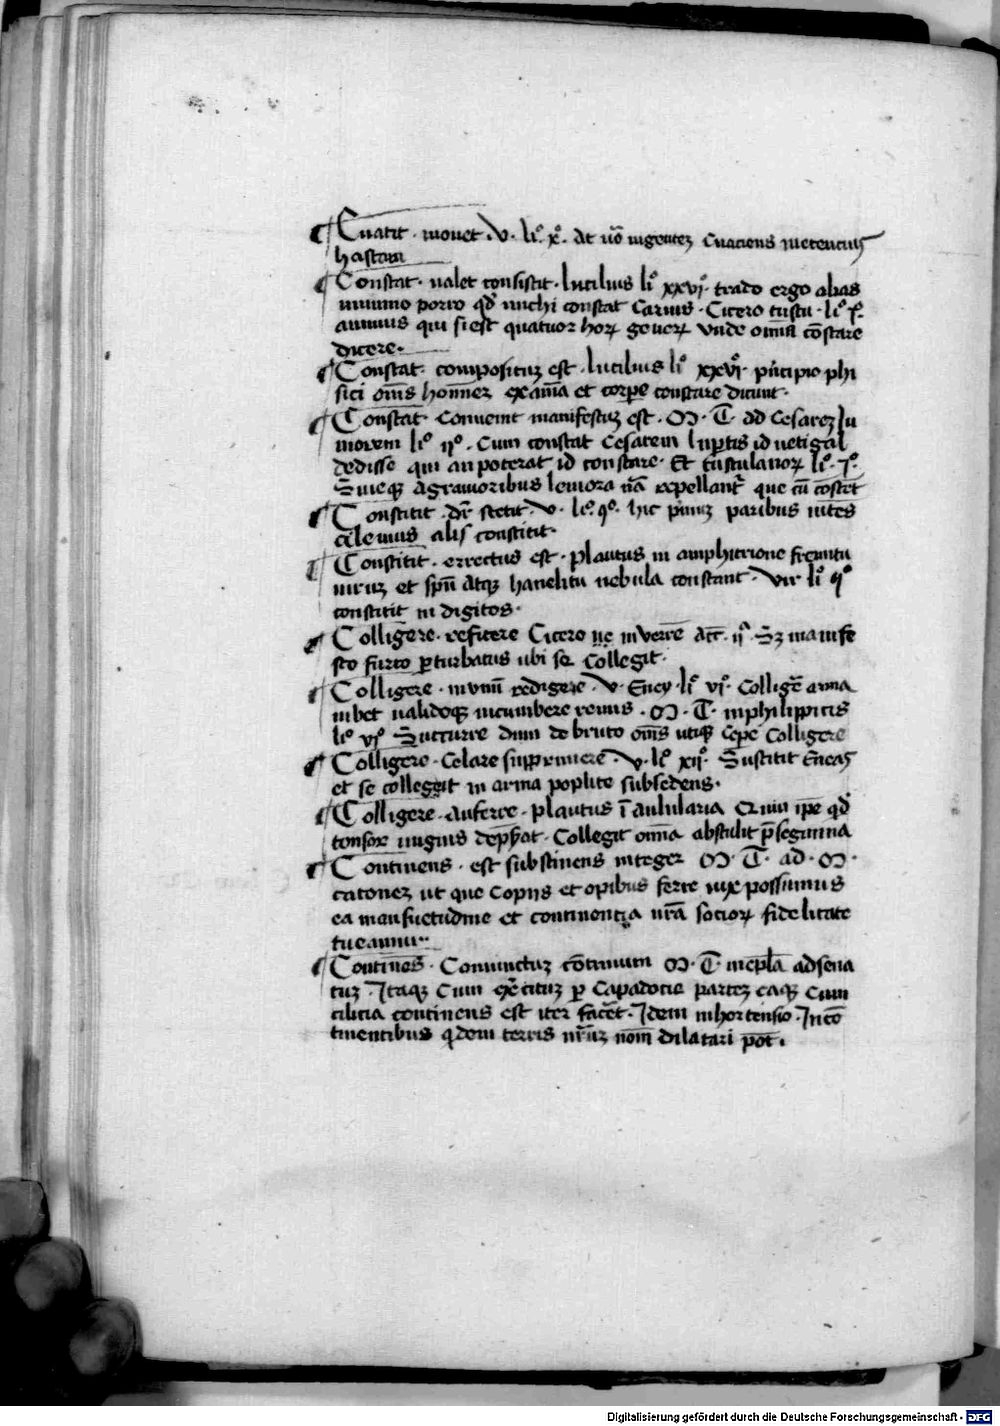 ¶ Cuatit · mouet · v · li° x° · at uō ingentez Cuaciens metencius
hastam
¶ Constat · ualet consistit · lucilius li° xxvi° · trado ergo alias
nummo porro qd michi constat Carius · Cicero tuscu · li° i°
animus qui si est quatuor horꝝ generꝝ unde omīa cōstare
dicere ·
¶ Constat · composituz est · lucilius li° xxvi° · pricipio phi
sici om̄s hominez ex aīma et corꝑe constare dicunt ·
¶ Constat · Conuenit manifestuz est · M · T · ad Cesarez Iu
niorem li° ii° · Cum constat Cesarem lupercis id uetigal
dedisse qui an poterat id constare · Et tusculanoꝝ li° · i° ·
Sueqꝫ a grauioribus leuiora nr̄a repellantᷣ que cū costet
¶ Constitit · dr̄ stetit · v · li° q° · hic primuz paribus nites
cileuius alis constitit ·
¶ Constitit · errectus est · plautus in amphitrione frequntu
uiruz et spm̄ atqꝫ hanelitu nebula constant · Vir li° q°
constitit in digitos ·
¶ Colligere · reficere Cicero ne in verrē Acc̄ · ii° · Sꝫ manife
sto furto ꝑturbatus ubi se collegit ·
¶ Colligere · in unū redigere · v · Eney · li° vi° Colligē arma
iubet ualidoqꝫ incumbere remis · M · T · in philippicis
li° vi° Succurre dum de bruto om̄s utiqꝫ Cepē Colligere
¶ Colligere · Celare supprimere · v · li° xii° · Sustitit Eneas
et se collegeit in arma poplite subsedens ·
¶ Colligere · auferre · plautus ī aulularia Quin ipē qd
tonsor unguis depsat · Collegit omīa abstulit p̄segmina
¶ Continens · est substinens integer M · T · ad · M ·
catonez ut que copiis et opibus ferre uix possumus
ea mansuetudine et continencia nr̄a socioꝝ fidelitate
tueamur ·
¶ Contines · Coniunctuz cōtinuum M · T · in epl̄a ad sena
tuz · Itaqꝫ Cum exercituz ꝑ Capadocie partez eaqꝫ cum
cilicia continens est iter facēt · Idem in hortensio · In cō
tinentibus qdem terris nr̄uz nom̄ dilatari pōt ·
Digitalisierung gefördert durch die Deutsche Forschungsgemeinschaft - DFG